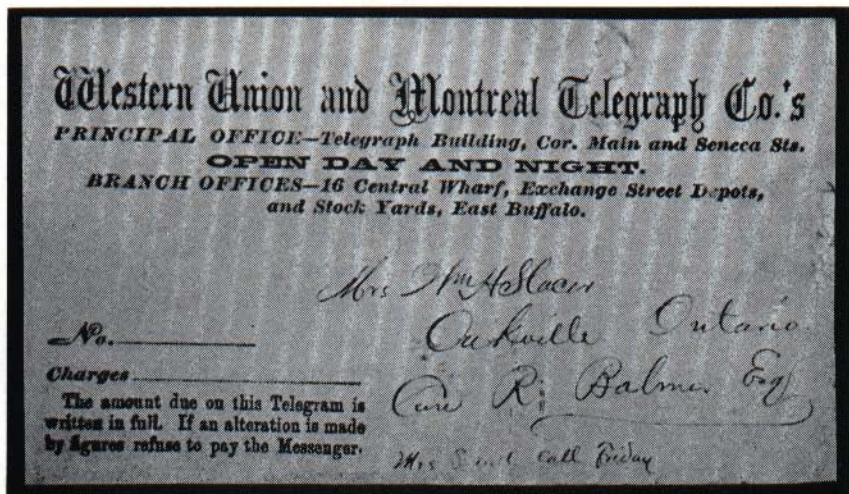 Western Union and Montreal Telegraph Co.'s
PRINCIPAL OFFICE—Telegraph Building, Cor. Main and Seneca Sts.
OPEN DAY AND NIGHT.
BRANCH OFFICES—16 Central Wharf, Exchange Street Depots,
and Stock Yards, East Buffalo.
Mrs Wm H
Oakville Ontario
No.
Charges
Care R. Balmer Esq
The amount due on this Telegram is
written in full. If an alteration is made
by figures refuse to pay the Messenger.
Mrs call Friday